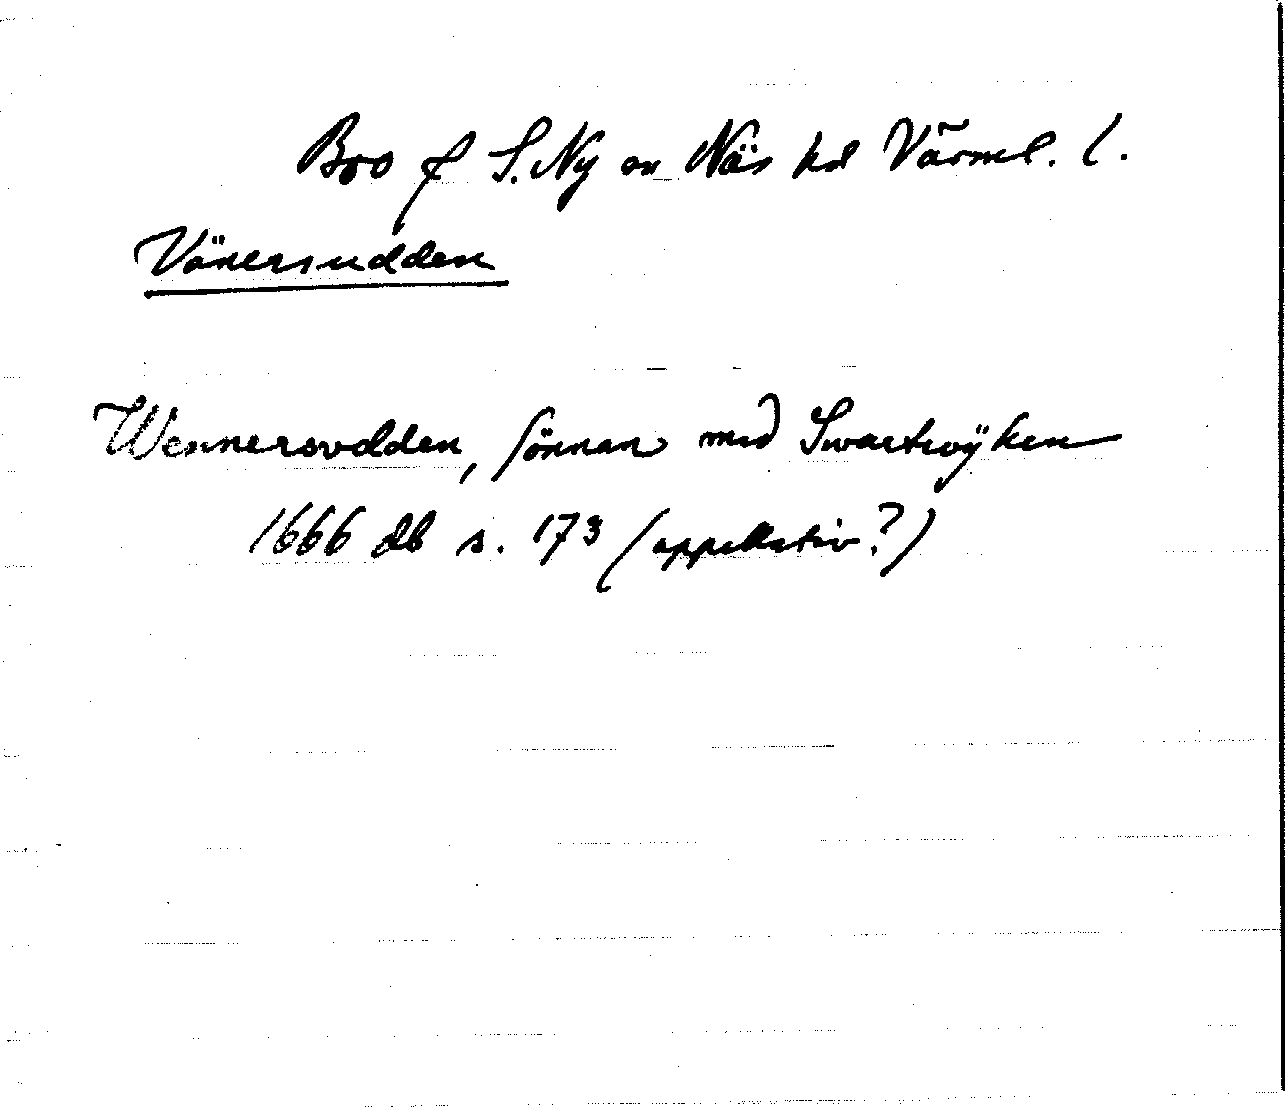 Bro f S. Ny sn Näs hd Värml. l.
Vänersudden
Wennersvdden, sönnan med Swartwÿken
1666 db s. 173 (appellativ?)